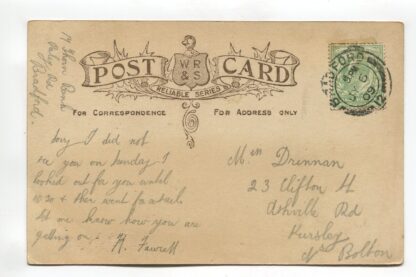 19 Thorn
Paley Rd
Bradford.
POST CARD
W R
& S
RELIABLE SERIES
FOR CORRESPONDENCE
FOR ADDRESS ONLY
BRADFORD
09
12
Sorry I did not
see you on Sunday I
looked out for you until
10.20 & then went for a
let me know how you are
getting on.
Drennan
23 Clifton St
Rd
Kersley
Nr Bolton